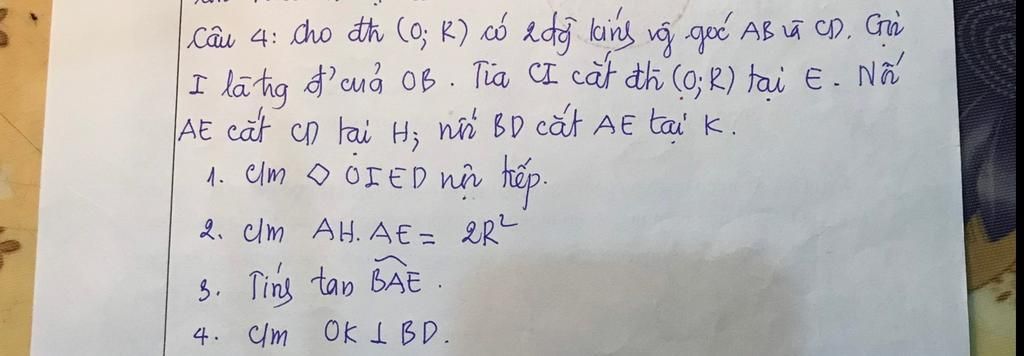 Câu 4: Cho đtr (O; R) có 2 đg kíng vg góc AB và CD. Gọi
I là trg đ' của OB. Tia CI cắt đtr (O; R) tại E. Nối
AE cắt CD tại H; nối BD cắt AE tại K.
1. c/m ◇ OIED nội tiếp.
2. c/m AH.AE = 2R²
3. Tíng tan BAE.
4. c/m OK ⊥ BD.